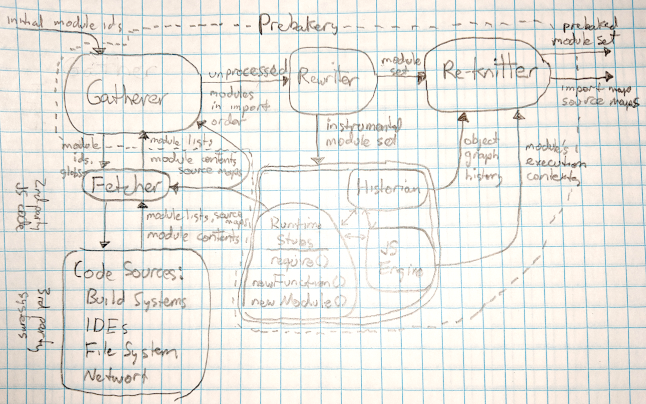 Initial module ids
Prebakery
prebaked
module set
Gatherer
unprocessed
modules
in import
order
Rewriter
module
set
Re-knitter
import maps
source maps
module
ids,
globs
module lists
module contents
source maps
instrumented
module set
object
graph
history
module's
execution
contexts
Fetcher
Historian
2nd party
JS code
module lists, source maps
module contents
Runtime
Stubs
require()
new Function()
new Module()
JS
Engine
3rd party
systems
Code Sources:
Build Systems
IDEs
File System
Network